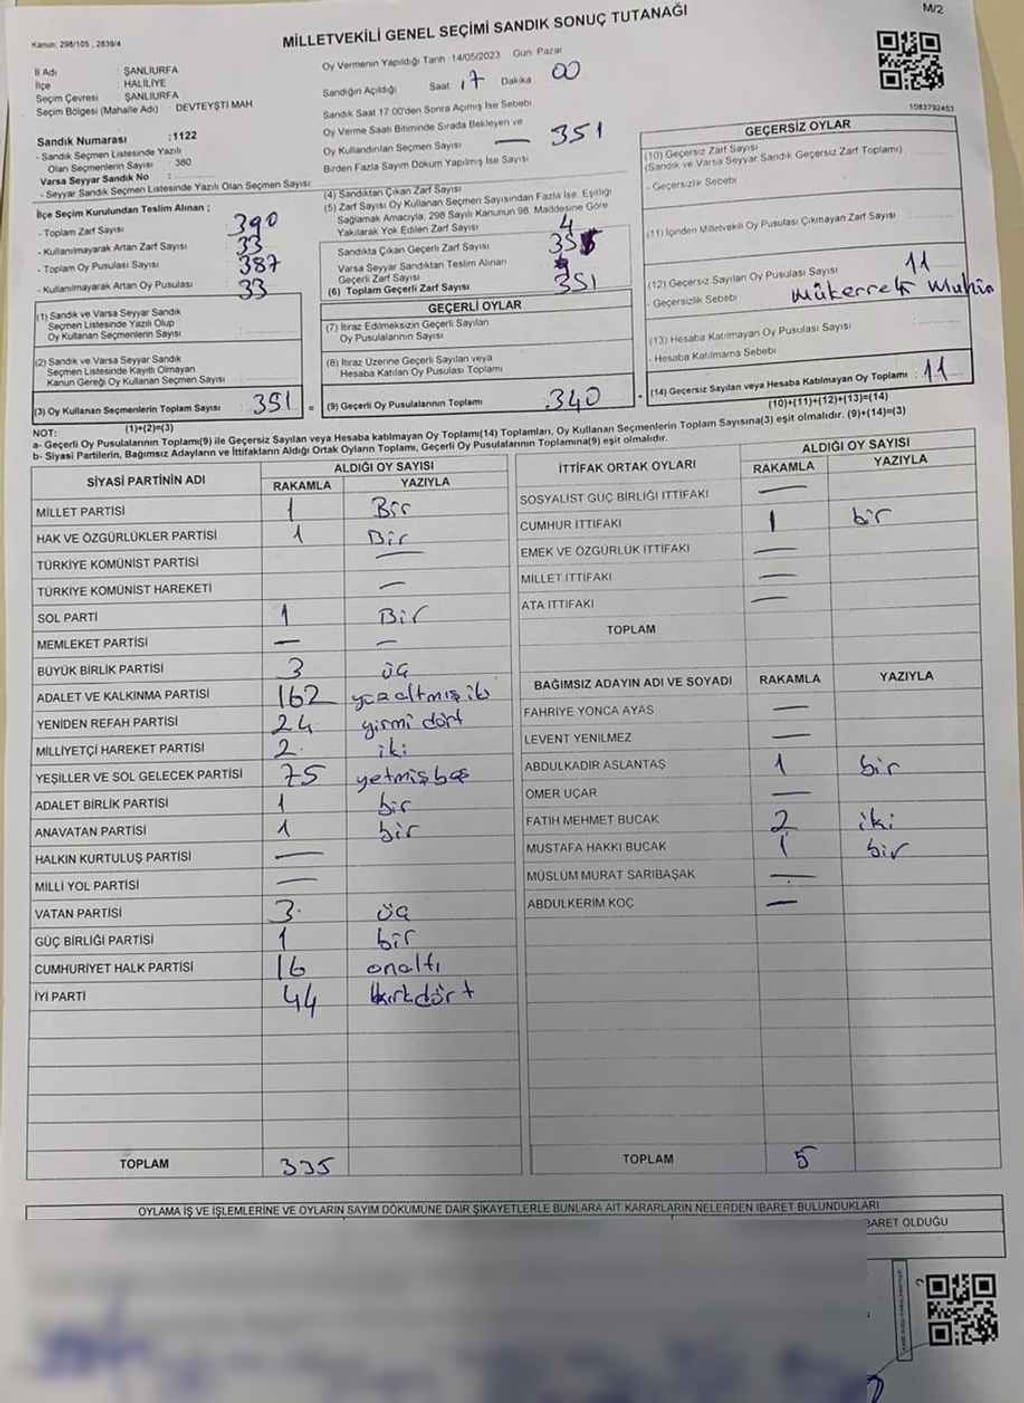 M/2
Kanun: 298/105 , 2839/4
MİLLETVEKİLİ GENEL SEÇİMİ SANDIK SONUÇ TUTANAĞI
İl Adı : ŞANLIURFA
İlçe : HALİLİYE
Seçim Çevresi : ŞANLIURFA
Seçim Bölgesi (Mahalle Adı) : DEVTEYŞTİ MAH
Sandık Numarası :1122
- Sandık Seçmen Listesinde Yazılı
Olan Seçmenlerin Sayısı : 380
Varsa Seyyar Sandık No :
- Seyyar Sandık Seçmen Listesinde Yazılı Olan Seçmen Sayısı
İlçe Seçim Kurulundan Teslim Alınan ;
- Toplam Zarf Sayısı 390
- Kullanılmayarak Artan Zarf Sayısı 33
- Toplam Oy Pusulası Sayısı 387
- Kullanılmayarak Artan Oy Pusulası 33
(1) Sandık ve Varsa Seyyar Sandık
Seçmen Listesinde Yazılı Olup
Oy Kullanan Seçmenlerin Sayısı
(2) Sandık ve Varsa Seyyar Sandık
Seçmen Listesinde Kayıtlı Olmayan
Kanun Gereği Oy Kullanan Seçmen Sayısı
(3) Oy Kullanan Seçmenlerin Toplam Sayısı 351 =
(1)+(2)=(3)
Oy Vermenin Yapıldığı Tarih :14/05/2023 Gün: Pazar
Sandığın Açıldığı Saat 17 Dakika 00
Sandık Saat 17.00'den Sonra Açmış İse Sebebi
Oy Verme Saati Bitiminde Sırada Bekleyen ve
Oy Kullandırılan Seçmen Sayısı — 351
Birden Fazla Sayım Döküm Yapılmış İse Sayısı
(4) Sandıktan Çıkan Zarf Sayısı
(5) Zarf Sayısı Oy Kullanan Seçmen Sayısından Fazla İse, Eşitliği
Sağlamak Amacıyla, 298 Sayılı Kanunun 98. Maddesine Göre
Yakılarak Yok Edilen Zarf Sayısı 4
Sandıkta Çıkan Geçerli Zarf Sayısı
Varsa Seyyar Sandıktan Teslim Alınan
Geçerli Zarf Sayısı
(6) Toplam Geçerli Zarf Sayısı 351
GEÇERLİ OYLAR
(7) İtiraz Edilmeksizin Geçerli Sayılan
Oy Pusulalarının Sayısı
(8) İtiraz Üzerine Geçerli Sayılan veya
Hesaba Katılan Oy Pusulası Toplamı
(9) Geçerli Oy Pusulalarının Toplamı 340
1083792453
GEÇERSİZ OYLAR
(10) Geçersiz Zarf Sayısı
(Sandık ve Varsa Seyyar Sandık Geçersiz Zarf Toplamı)
- Geçersizlik Sebebi
(11) İçinden Milletvekili Oy Pusulası Çıkmayan Zarf Sayısı
(12) Geçersiz Sayılan Oy Pusulası Sayısı 11
- Geçersizlik Sebebi Mükerrer Mühür
(13) Hesaba Katılmayan Oy Pusulası Sayısı
- Hesaba Katılmama Sebebi
(14) Geçersiz Sayılan veya Hesaba Katılmayan Oy Toplamı : 11
(10)+(11)+(12)+(13)=(14)
NOT:
a- Geçerli Oy Pusulalarının Toplamı(9) ile Geçersiz Sayılan veya Hesaba katılmayan Oy Toplamı(14) Toplamları, Oy Kullanan Seçmenlerin Toplam Sayısına(3) eşit olmalıdır. (9)+(14)=(3)
b- Siyasi Partilerin, Bağımsız Adayların ve İttifakların Aldığı Ortak Oyların Toplamı, Geçerli Oy Pusulalarının Toplamına(9) eşit olmalıdır.
SİYASİ PARTİNİN ADI ALDIĞI OY SAYISI
RAKAMLA YAZIYLA
MİLLET PARTİSİ 1 Bir
HAK VE ÖZGÜRLÜKLER PARTİSİ 1 Bir
TÜRKİYE KOMÜNİST PARTİSİ —
TÜRKİYE KOMÜNİST HAREKETİ —
SOL PARTİ 1 Bir
MEMLEKET PARTİSİ — —
BÜYÜK BİRLİK PARTİSİ 3 üç
ADALET VE KALKINMA PARTİSİ 162 yüzaltmışiki
YENİDEN REFAH PARTİSİ 24 yirmi dört
MİLLİYETÇİ HAREKET PARTİSİ 2 iki
YEŞİLLER VE SOL GELECEK PARTİSİ 75 yetmişbeş
ADALET BİRLİK PARTİSİ 1 bir
ANAVATAN PARTİSİ 1 bir
HALKIN KURTULUŞ PARTİSİ —
MİLLİ YOL PARTİSİ —
VATAN PARTİSİ 3 üç
GÜÇ BİRLİĞİ PARTİSİ 1 bir
CUMHURİYET HALK PARTİSİ 16 onaltı
İYİ PARTİ 44 kırkdört
TOPLAM 335
İTTİFAK ORTAK OYLARI ALDIĞI OY SAYISI
RAKAMLA YAZIYLA
SOSYALİST GÜÇ BİRLİĞİ İTTİFAKI —
CUMHUR İTTİFAKI 1 bir
EMEK VE ÖZGÜRLÜK İTTİFAKI —
MİLLET İTTİFAKI —
ATA İTTİFAKI —
TOPLAM
BAĞIMSIZ ADAYIN ADI VE SOYADI RAKAMLA YAZIYLA
FAHRİYE YONCA AYAS —
LEVENT YENİLMEZ —
ABDULKADİR ASLANTAŞ 1 bir
ÖMER UÇAR —
FATİH MEHMET BUCAK 2 iki
MUSTAFA HAKKI BUCAK 1 bir
MÜSLÜM MURAT SARIBAŞAK —
ABDULKERİM KOÇ —
TOPLAM 5
OYLAMA İŞ VE İŞLEMLERİNE VE OYLARIN SAYIM DÖKÜMÜNE DAİR ŞİKAYETLERLE BUNLARA AİT KARARLARIN NELERDEN İBARET BULUNDUKLARI
BARET OLDUĞU